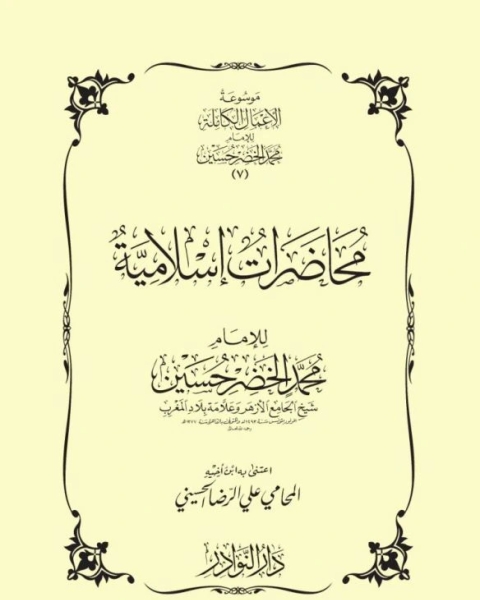 مَوسُوعَةُ
الأَعْمَالِ الكَامِلَةِ
للإمَام
مُحمَّد الخَضِر حُسَين
(٧)
مُحَاضَرَاتٌ إِسْلَامِيَّةٌ
لِلإِمَامِ
مُحَمَّد الخَضِر حُسَيْن
شَيْخ الجَامِع الأَزْهَر وَعَلَّامَة بِلَادِ المَغْرِبِ
اعتنى به ابن أخيه
المحامي علي الرّضا الحسيني
دَارُ النَّوَادِرِ